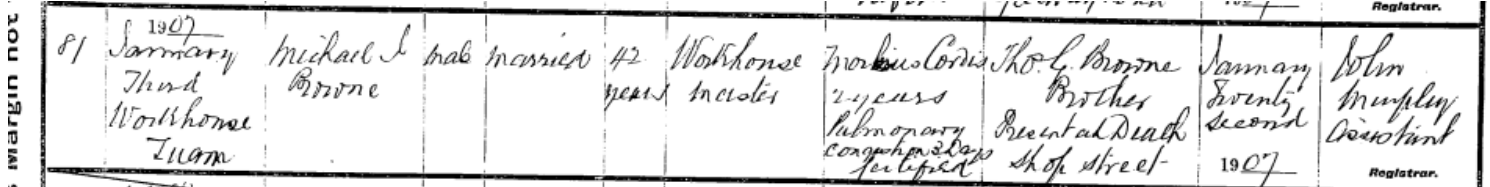 Margin not
Registrar.
81
1907
January
Third
Workhouse
Tuam
Michael J
Browne
Male
Married
42
years
Workhouse
Master
Morbus Cordis
2 years
Pulmonary
Congestion 3 Days
Certified
Thos. G. Browne
Brother
Present at Death
Shop Street
January
Twenty
Second
1907
John
Murphy
Assistant
Registrar.